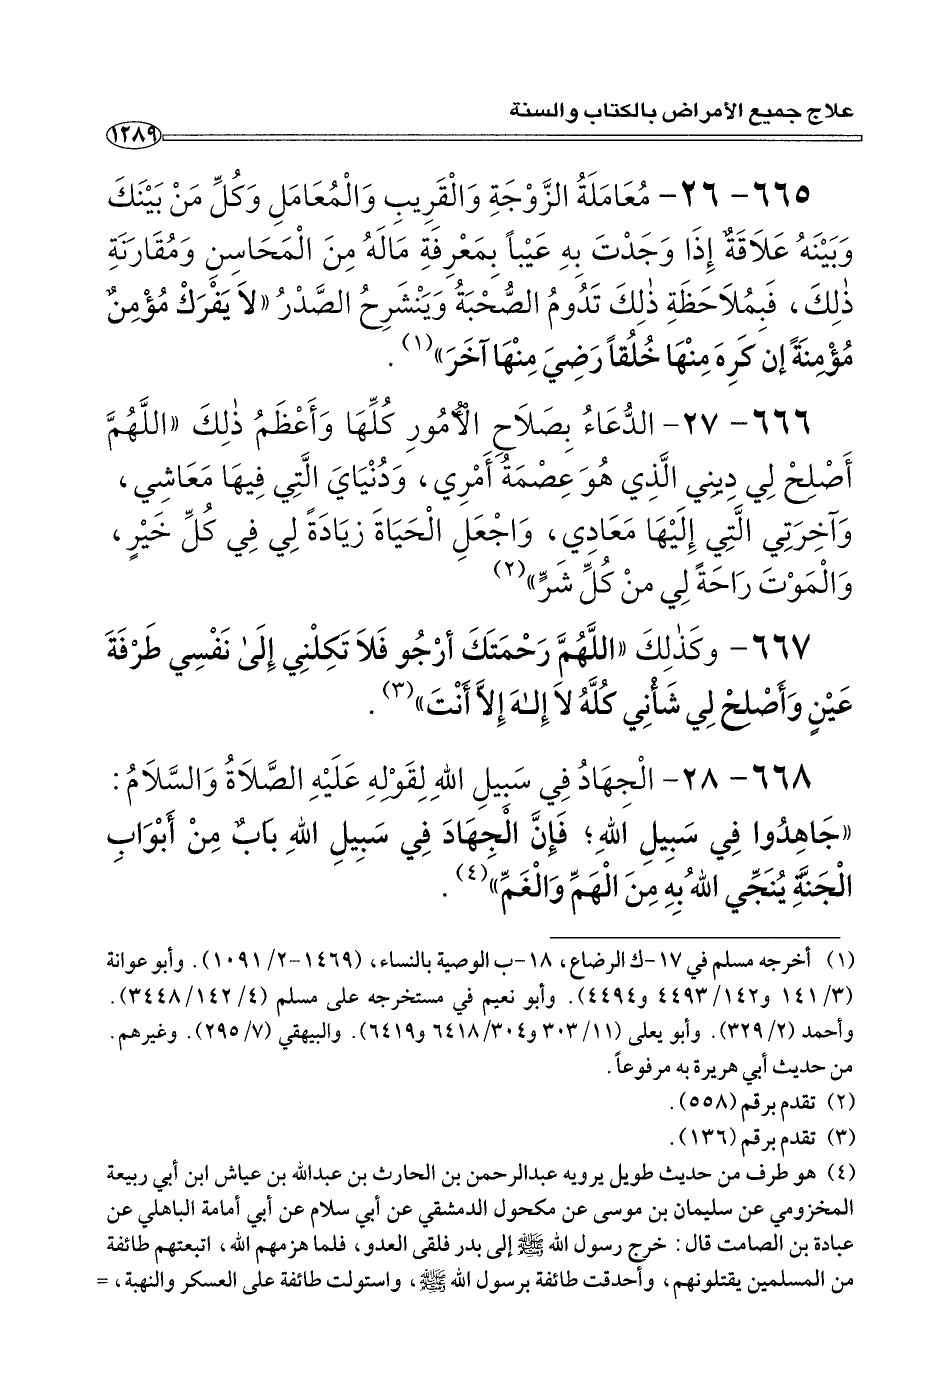 علاج جميع الأمراض بالكتاب والسنة
١٢٨٩
٦٦٥- ٢٦- مُعَامَلَةُ الزَّوْجَةِ وَالْقَرِيبِ وَالْمُعَامَلِ وَكُلِّ مَنْ بَيْنَكَ
وَبَيْنَهُ عَلَاقَةٌ إِذَا وَجَدْتَ بِهِ عَيْباً بِمَعْرِفَةِ مَالَهُ مِنَ الْمَحَاسِنِ وَمُقَارَنَةِ
ذٰلِكَ، فَبِمُلَاحَظَةِ ذٰلِكَ تَدُومُ الصُّحْبَةُ وَيَنْشَرِحُ الصَّدْرُ «لاَ يَفْرَكْ مُؤْمِنٌ
مُؤْمِنَةً إن كَرِهَ مِنْهَا خُلُقاً رَضِيَ مِنْهَا آخَرَ»(١) .
٦٦٦- ٢٧- الدُّعَاءُ بِصَلَاحِ الْأُمُورِ كُلِّهَا وَأَعْظَمُ ذٰلِكَ «اللَّهُمَّ
أَصْلِحْ لِي دِينِي الَّذِي هُوَ عِصْمَةُ أَمْرِي، وَدُنْيَايَ الَّتِي فِيهَا مَعَاشِي،
وَآخِرَتِي الَّتِي إِلَيْهَا مَعَادِي، وَاجْعَلِ الْحَيَاةَ زِيَادَةً لِي فِي كُلِّ خَيْرٍ،
وَالْمَوْتَ رَاحَةً لِي منْ كُلِّ شَرٍّ»(٢)
٦٦٧- وكَذٰلِكَ «اللَّهُمَّ رَحْمَتَكَ أرْجُو فَلاَ تَكِلْنِي إِلَىٰ نَفْسِي طَرْفَةَ
عَيْنٍ وَأَصْلِحْ لِي شَأْنِي كُلَّهُ لاَ إِلـٰهَ إِلاَّ أَنْتَ»(٣).
٦٦٨- ٢٨- الْجِهَادُ فِي سَبِيلِ اللهِ لِقَوْلِهِ عَلَيْهِ الصَّلَاةُ وَالسَّلَامُ:
«جَاهِدُوا فِي سَبِيلِ اللهِ؛ فَإِنَّ الْجِهَادَ فِي سَبِيلِ اللهِ بَابٌ مِنْ أَبْوَابِ
الْجَنَّةِ يُنَجِّي اللهُ بِهِ مِنَ الْهَمِّ وَالْغَمِّ»(٤).
(١) أخرجه مسلم في ١٧-ك الرضاع، ١٨-ب الوصية بالنساء، (١٤٦٩-٢/ ١٠٩١). وأبو عوانة
(٣/ ١٤١ و١٤٢/ ٤٤٩٣ و٤٤٩٤). وأبو نعيم في مستخرجه على مسلم (٤/ ١٤٢/ ٣٤٤٨).
وأحمد (٢/ ٣٢٩). وأبو يعلى (١١/ ٣٠٣ و٣٠٤/ ٦٤١٨ و٦٤١٩). والبيهقي (٧/ ٢٩٥). وغيرهم.
من حديث أبي هريرة به مرفوعاً.
(٢) تقدم برقم (٥٥٨).
(٣) تقدم برقم (١٣٦).
(٤) هو طرف من حديث طويل يرويه عبدالرحمن بن الحارث بن عبدالله بن عياش ابن أبي ربيعة
المخزومي عن سليمان بن موسى عن مكحول الدمشقي عن أبي سلام عن أبي أمامة الباهلي عن
عبادة بن الصامت قال: خرج رسول الله ﷺ إلى بدر فلقى العدو، فلما هزمهم الله، اتبعتهم طائفة
من المسلمين يقتلونهم، وأحدقت طائفة برسول الله ﷺ، واستولت طائفة على العسكر والنهبة، =